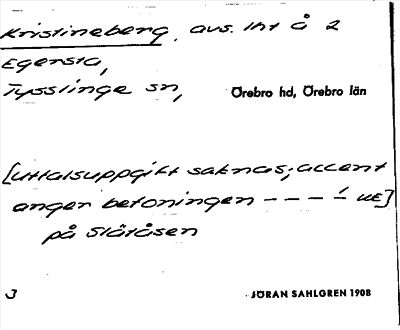 Kristineberg, avs. Int å 2
Egersta,
Tysslinge sn, Örebro hd, Örebro län
[Uttalsuppgift saknas; accent
anger betoningen – – – –́ UE]
på Slätåsen
3 JÖRAN SAHLGREN 1908